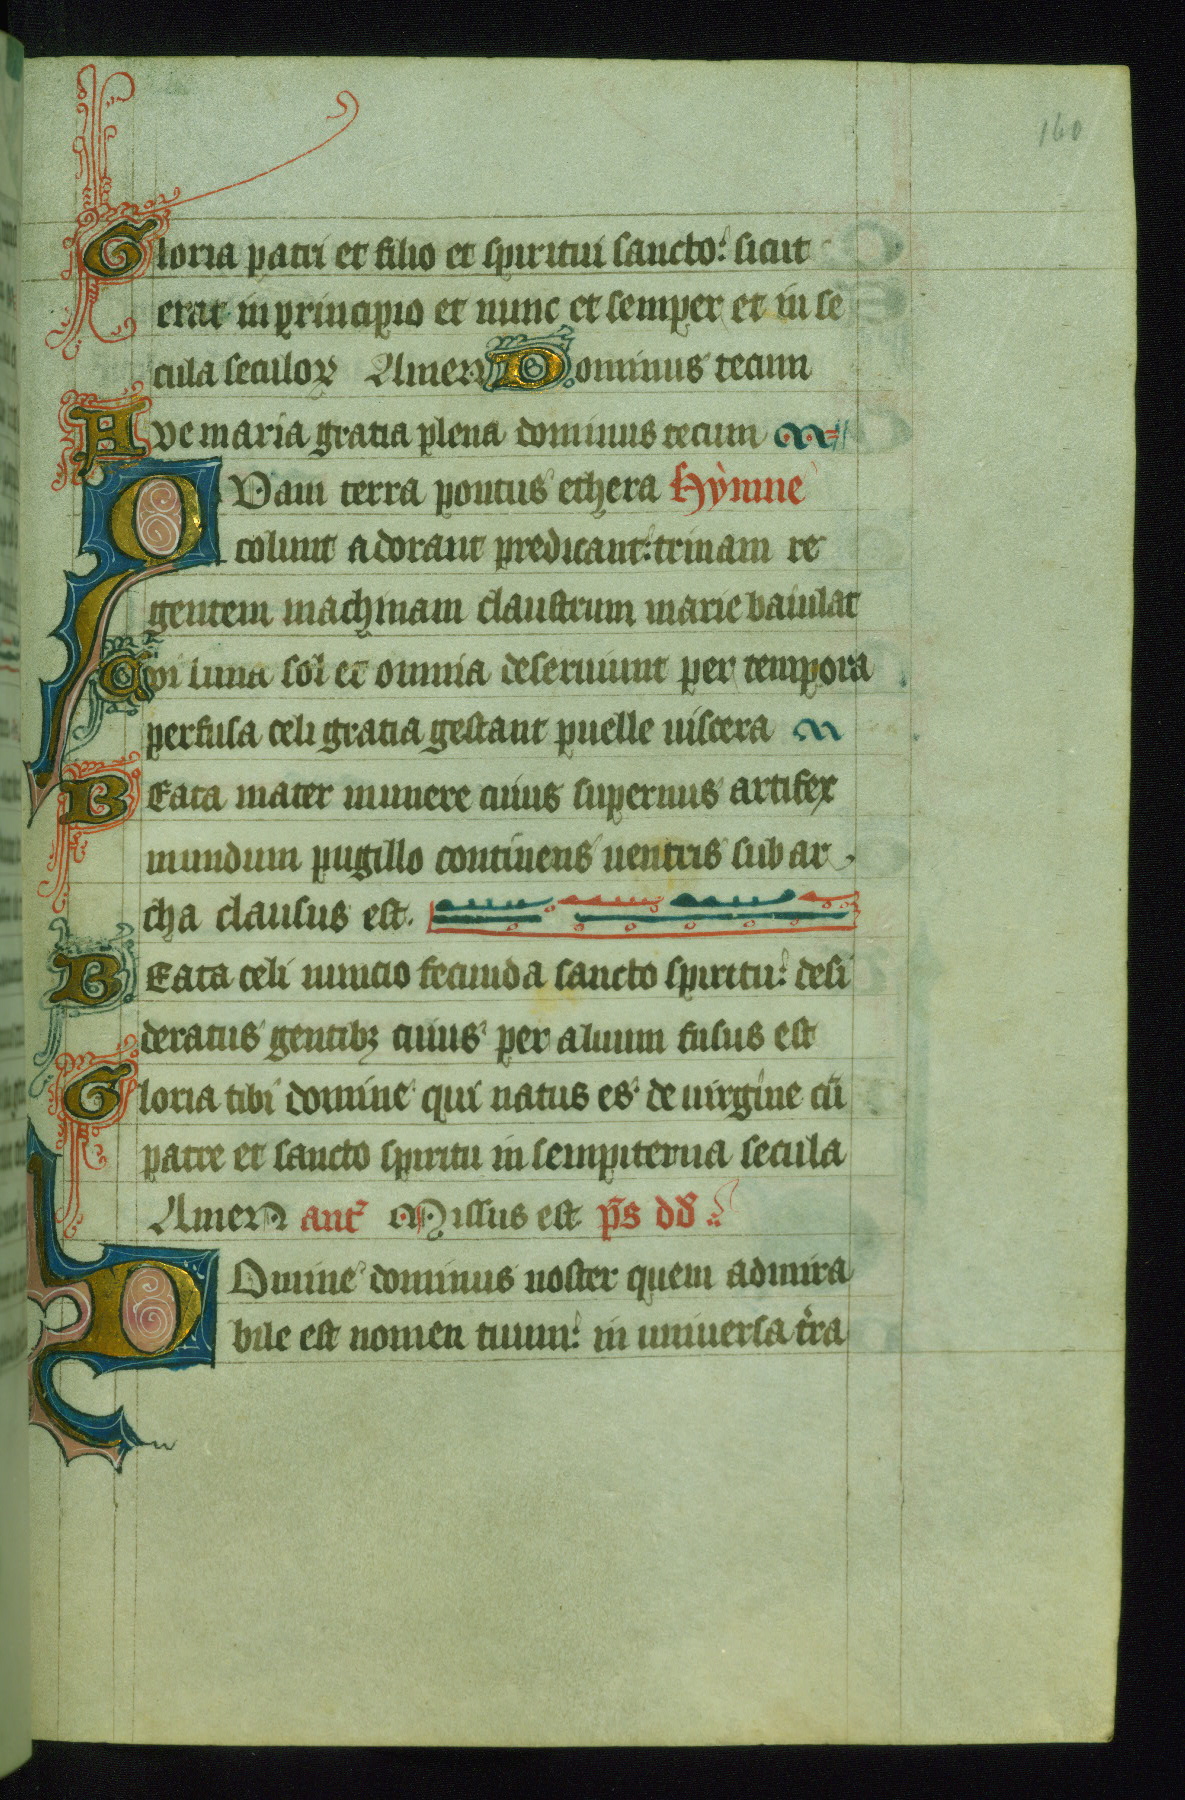 160
Gloria patri et filio et spiritui sancto: sicut
erat in principio et nunc et semper et in se
cula seculoꝝ Amen Dominus tecum
Ave maria gratia plena dominus tecum
QVam terra pontus ethera Hympne
colunt adorant predicant: trinam re
gentem machinam claustrum marie baiulat
Cvi luna sol et omnia deseruiunt per tempora
perfusa celi gratia gestant puelle uiscera
BEata mater munere cuius supernus artifex
mundum pugillo continens uentris sub ar
cha clausus est.
BEata celi nuncio fecunda sancto spiritu: desi
deratus gentibꝫ cuius per aluum fusus est
Gloria tibi domine qui natus es de uirgine cū
patre et sancto spiritu in sempiterna secula
Amen ant Missus est p̄s dd̄
DOmine dominus noster quem admira
bile est nomen tuum: in uniuersa t̄ra